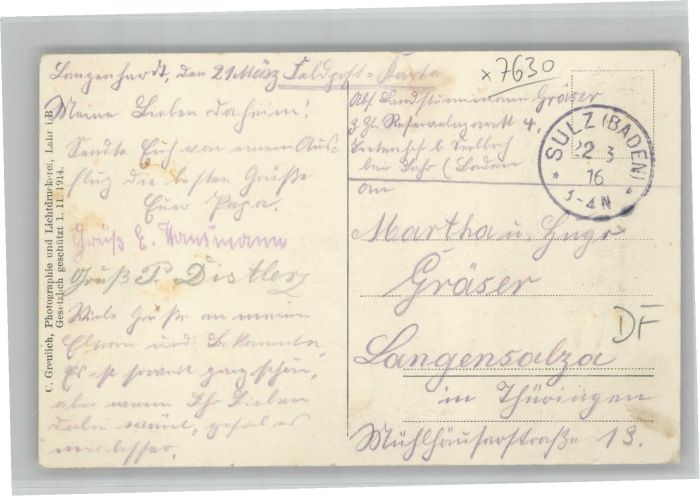 Langenhardt, den 21. März Feldpost-Karte
x7630
Meine Lieben daheim!
Sendte Euch von einem Aus-
flug die besten Grüße
Euer Papa.
Gruß E. Hausmann
Gruß P. Distler
Viele Grüße an meine
Eltern und Bekannte
Es ist soweit ganz schön,
aber wenn Ihr Lieben
dabei wäret, gefiel es
mir besser.
C. Grenlich, Photographie und Lichtdruckerei, Lahr i. B.
Gesetzlich geschützt 1. 11. 1914.
Abs. Landsturmmann Gräser
z. Zt. 4.
b. Seelbach
bei Lahr (Baden
SULZ (BADEN)
22 3
16
3-4 N
An
Martha u. Hugo
Gräser
DF
Langensalza
in Thüringen
Mühlhäuserstraße 13.